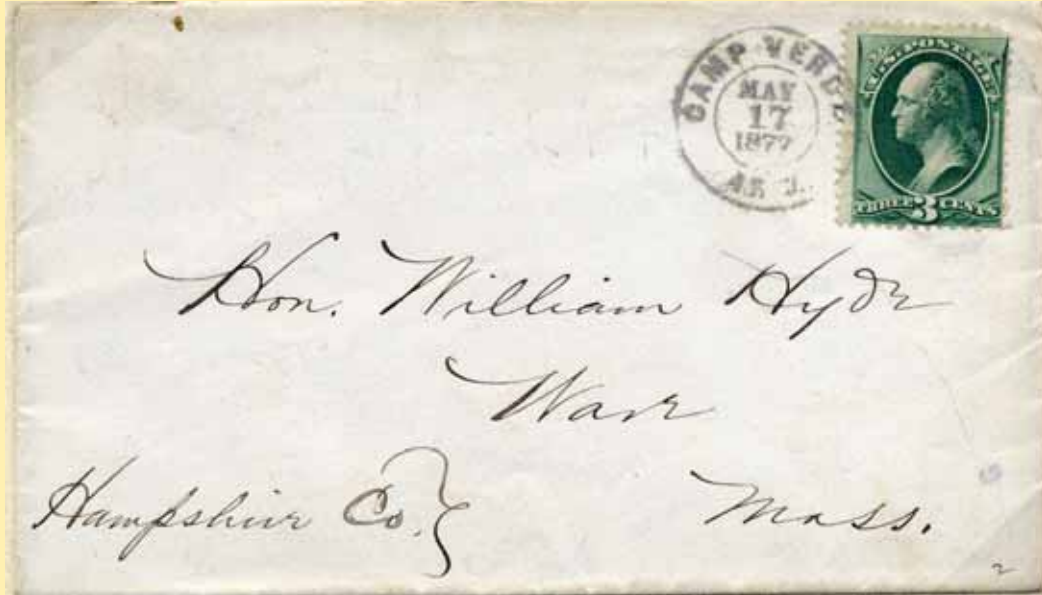 CAMP VERDE
MAY
17
1877
U.S. POSTAGE
THREE 3 CENTS
Hon. William Hyde
Ware
Hampshire Co.
Mass.